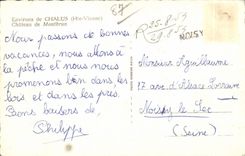 Environs de CHALUS (Hte-Vienne)
Château de Montbrun
Nous passons de bonnes
vacances, nous allons à
la pêche et nous nous
promenons bien dans les
bois et dans les prés.
Bons baisers de
Philippe
NOISY
Monsieur
17 ave d'Alsace Lorraine
Noisy le Sec
(Seine)